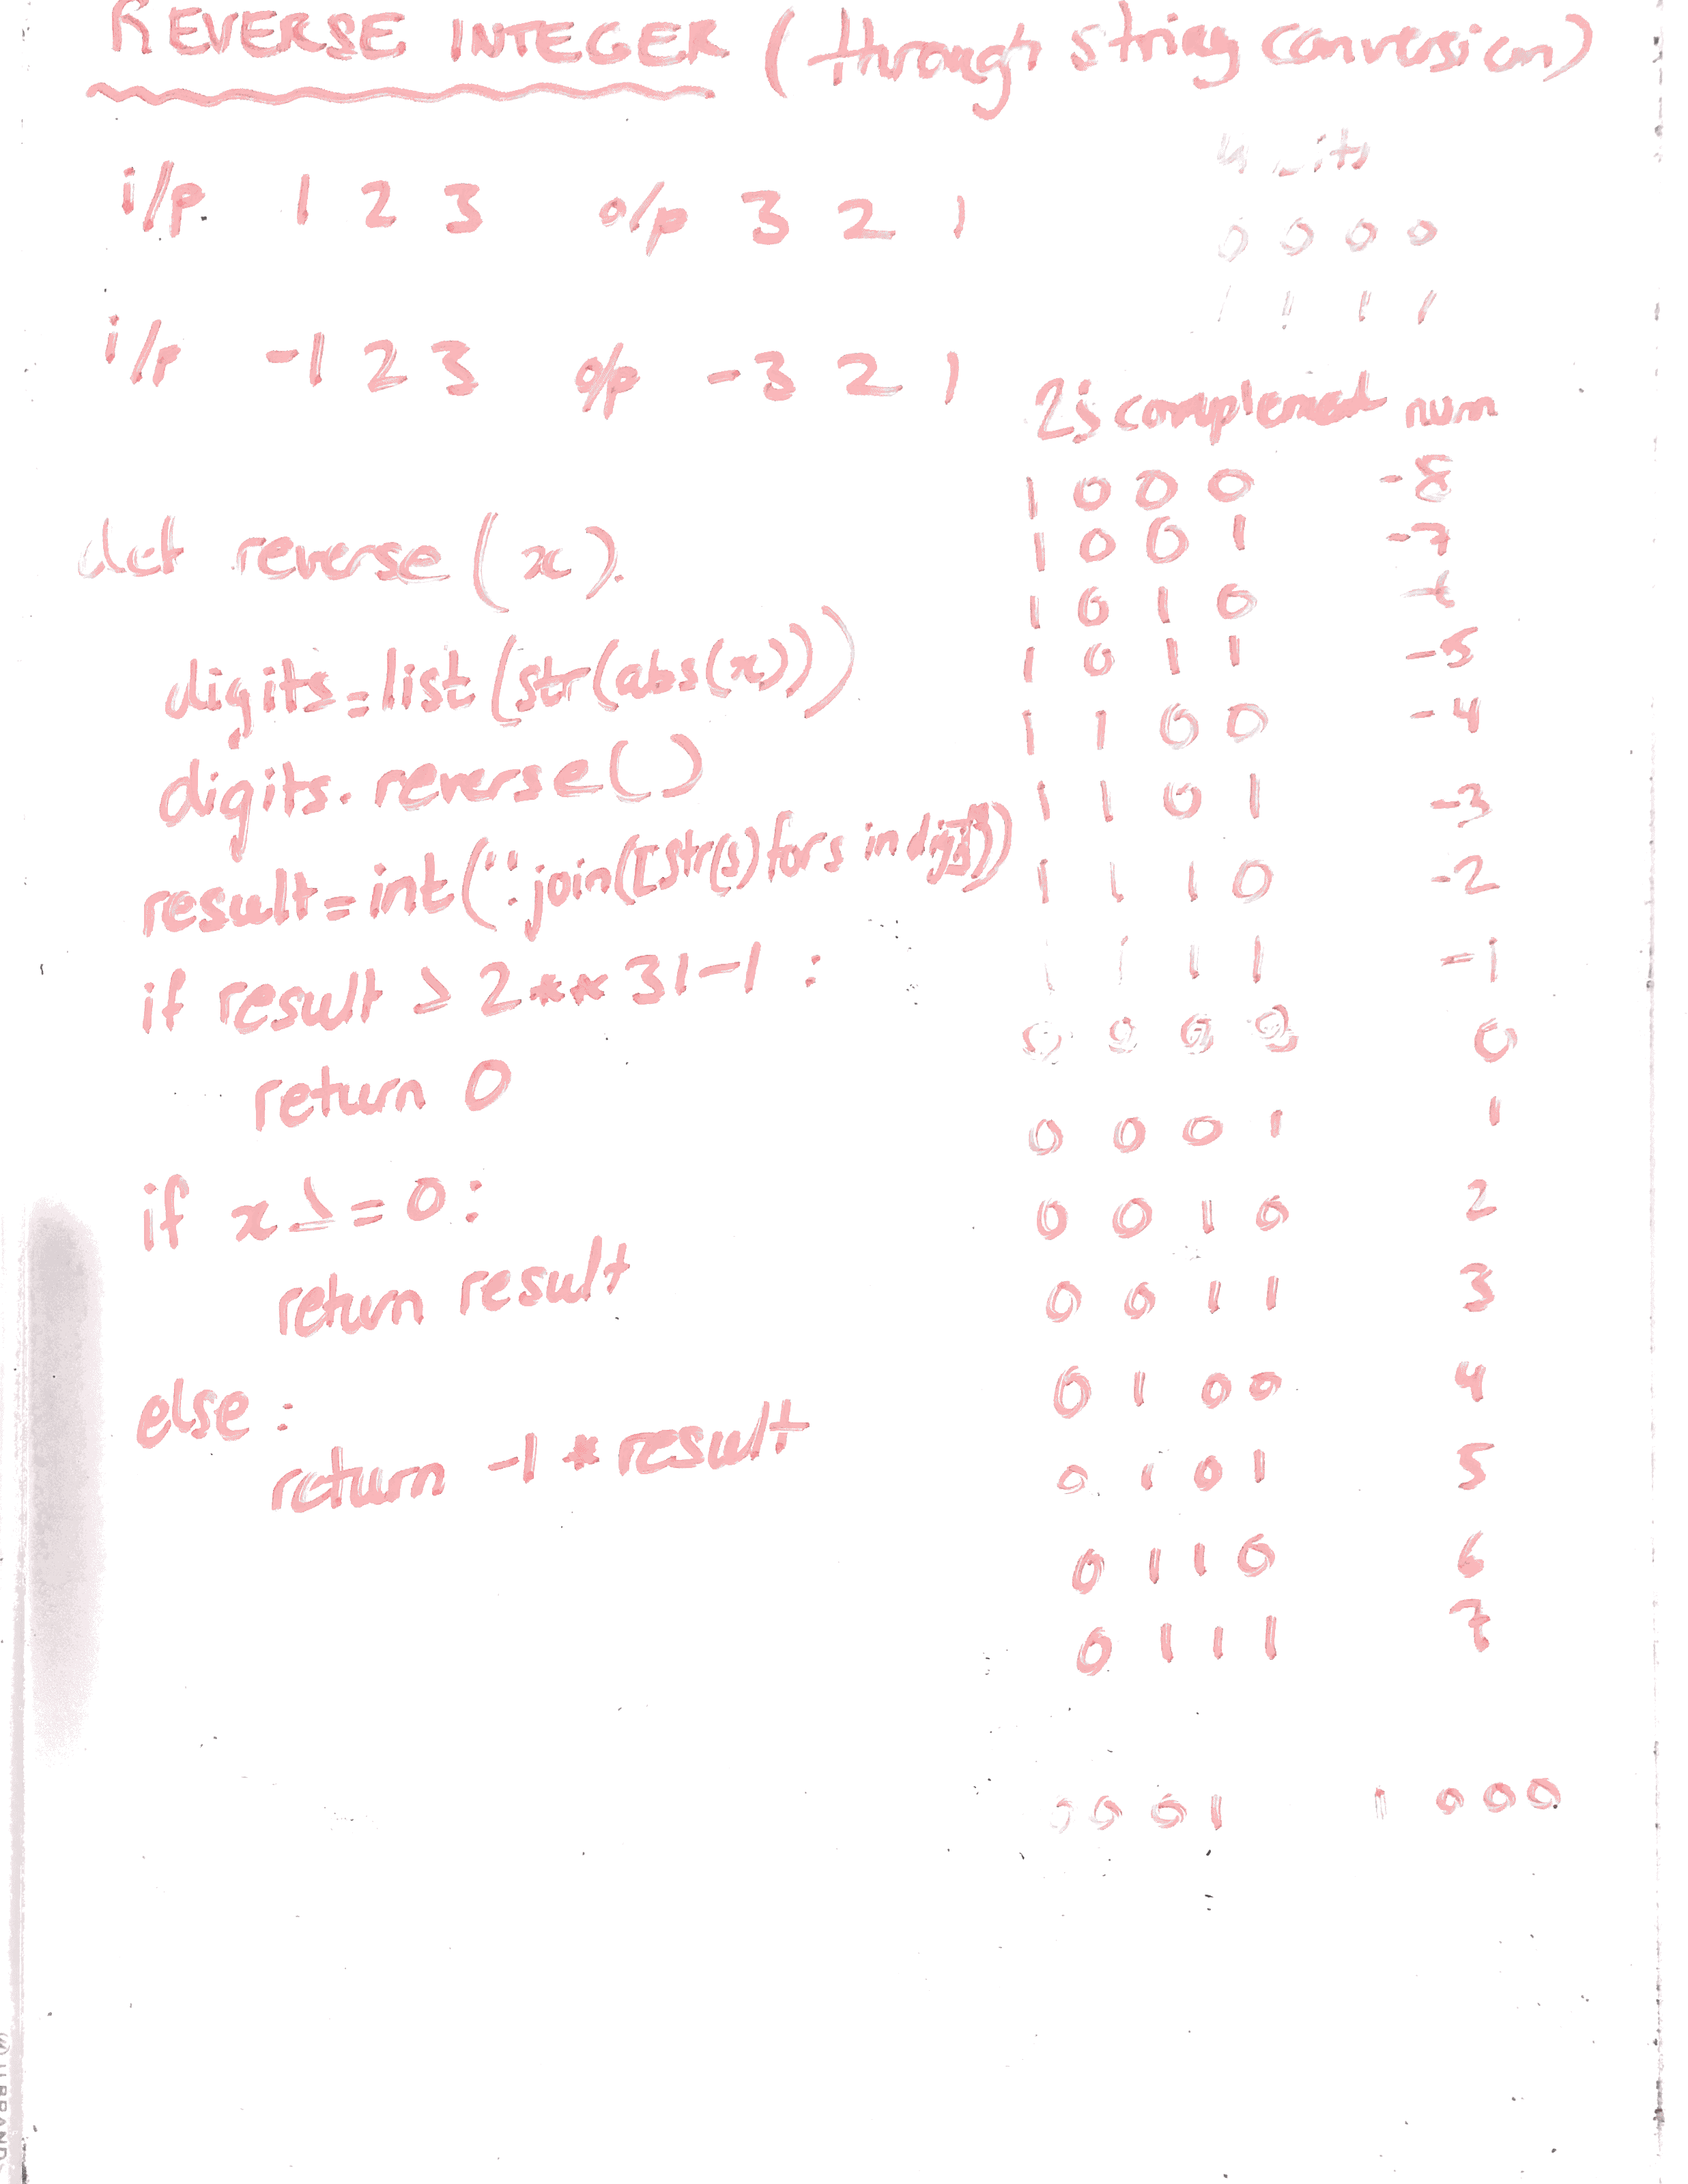 REVERSE INTEGER (through string conversion)
i/p 1 2 3 o/p 3 2 1
i/p -1 2 3 o/p -3 2 1
def reverse(x):
digits=list(str(abs(x)))
digits.reverse()
result=int("".join([str(s) for s in digits]))
if result ≥ 2**31-1:
return 0
if x >= 0:
return result
else:
return -1 * result
0 0 0 0
1 1 1 1
2's complement num
1 0 0 0 -8
1 0 0 1 -7
1 0 1 0 -6
1 0 1 1 -5
1 1 0 0 -4
1 1 0 1 -3
1 1 1 0 -2
1 1 1 1 -1
0 0 0 0 0
0 0 0 1 1
0 0 1 0 2
0 0 1 1 3
0 1 0 0 4
0 1 0 1 5
0 1 1 0 6
0 1 1 1 7
0 0 0 1 1 0 0 0